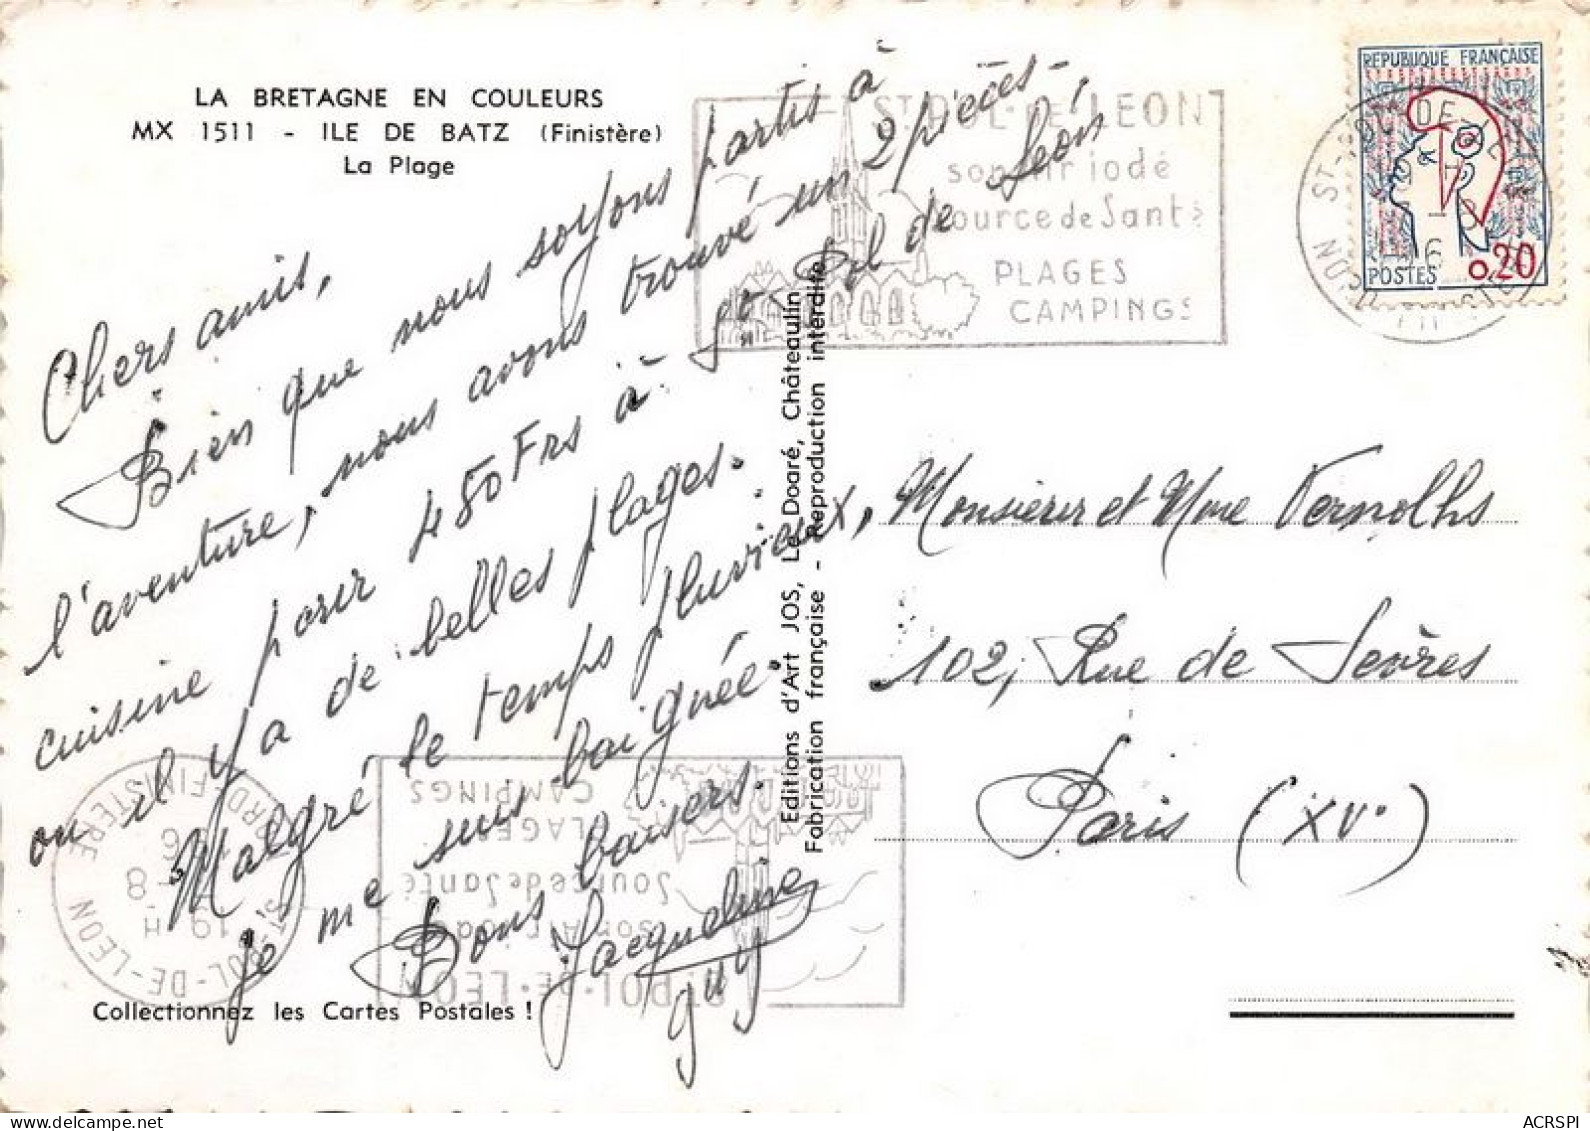 LA BRETAGNE EN COULEURS
MX 1511 - ILE DE BATZ (Finistère)
La Plage
Chers amis,
Bien que nous soyons partis à
l'aventure, nous avons trouvé un 2 pièces-
cuisine pour 480 Frs à St Pol de Léon
ou il y a de belles plages.
Malgré le temps pluvieux,
je me suis baignée.
Bons baisers.
Jacqueline
guy
Collectionnez les Cartes Postales !
Editions d'Art JOS, Le Doaré, Châteaulin
Fabrication française - Reproduction interdite
ST. POL-DE-LEON
son Air iodé
Source de Santé
PLAGES
CAMPINGS
REPUBLIQUE FRANÇAISE
POSTES 0,20
Monsieur et Mme Vernolhs
102, Rue de Sèvres
Paris (XVe)
ST-POL-DE-LEON
19 H
-8
6
NORD-FINISTERE
ST. POL-DE-LEON
son Air iodé
Source de Santé
PLAGES
CAMPINGS
ACRSPI